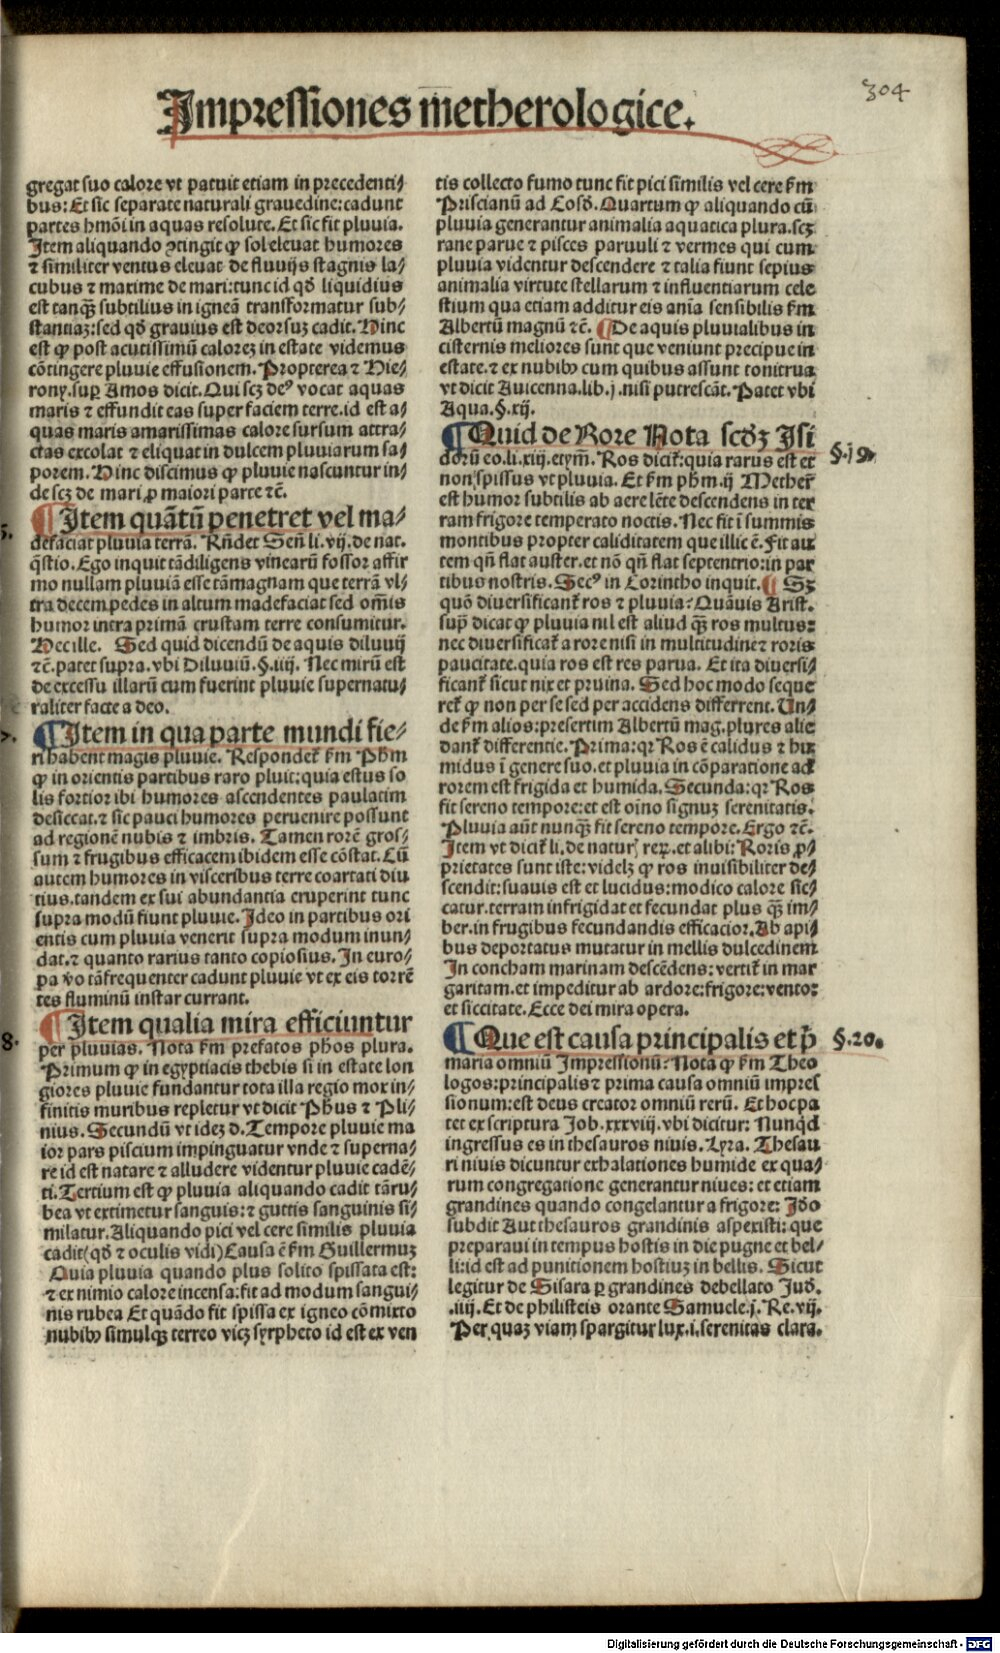 304
Impressiones metherologice.
gregat suo calore vt patuit etiam in precedenti⸗
bus: Et sic separate naturali grauedine: cadunt
partes hmōi in aquas resolute. Et sic fit pluuia.
Item aliquando ꝯtingit ꝙ sol eleuat humores
⁊ similiter ventus eleuat de fluuijs stagnis la⸗
cubus ⁊ maxime de mari: tunc id qḋ liquidius
est tanqȝ subtilius in igneā transformatur sub⸗
stantiaȝ: sed qḋ grauius est deorsuȝ cadit. Hinc
est ꝙ post acutissimū caloreȝ in estate videmus
cōtingere pluuie effusionem. Propterea ⁊ Hie⸗
rony. suꝑ Amos dicit. Qui scȝ deꝰ vocat aquas
maris ⁊ effundit eas super faciem terre. id est a⸗
quas maris amarissimas calore sursum attra⸗
ctas excolat ⁊ eliquat in dulcem pluuiarum sa⸗
porem. Hinc discimus ꝙ pluuie nascuntur in⸗
de scȝ de mari ꝓ maiori parte ⁊c̄.
5.
¶ Item quātū penetret vel ma⸗
defaciat pluuia terrā. Rn̄det Sen̄ li. vij. de nat.
q̄stio. Ego inquit tā diligens vinearū fossor affir
mo nullam pluuiā esse tā magnam que terrā vl⸗
tra decem pedes in altum madefaciat sed om̄is
humor intra primā crustam terre consumitur.
Hec ille. Sed quid dicendū de aquis diluuij
⁊c̄. patet supra. vbi Diluuiū. §. iiij. Nec mirū est
de excessu illarū cum fuerint pluuie supernatu⸗
raliter facte a deo.
7.
¶ Item in qua parte mundi fie⸗
ri habent magis pluuie. Respondet᷑ ẜm Ph̄m
ꝙ in orientis partibus raro pluit: quia estus so
lis fortior ibi humores ascendentes paulatim
desiccat. ⁊ sic pauci humores peruenire possunt
ad regionē nubis ⁊ imbris. Tamen rorē gros⸗
sum ⁊ frugibus efficacem ibidem esse cōstat. Cū
autem humores in visceribus terre coartati diu
tius. tandem ex sui abundantia eruperint tunc
supra modū fiunt pluuie. Ideo in partibus ori
entis cum pluuia venerit supra modum inun⸗
dat. ⁊ quanto rarius tanto copiosius. In euro⸗
pa v̊o tā frequenter cadunt pluuie vt ex eis torrē
tes fluminū instar currant.
8.
¶ Item qualia mira efficiuntur
per pluuias. Nota ẜm prefatos ph̄os plura.
Primum ꝙ in egyptiacis thebis si in estate lon
giores pluuie fundantur tota illa regio mox in⸗
finitis muribus repletur vt dicit Ph̄us ⁊ Pli⸗
nius. Secundū vt ideȝ d. Tempore pluuie ma
ior pars piscium impinguatur vnde ⁊ superna⸗
re id est natare ⁊ alludere videntur pluuie cadē⸗
ti. Tertium est ꝙ pluuia aliquando cadit tā ru⸗
bea vt extimetur sanguis: ⁊ guttis sanguinis si⸗
milatur. Aliquando pici vel cere similis pluuia
cadit (qḋ ⁊ oculis vidi) Causa ē ẜm Guillermuȝ
Quia pluuia quando plus solito spissata est:
⁊ ex nimio calore incensa: fit ad modum sangui⸗
nis rubea Et quādo fit spissa ex igneo cōmixto
nubibꝰ simulqȝ terreo vicȝ syrpheto id est ex ven
tis collecto fumo tunc fit pici similis vel cere ẜm
Priscianū ad Cosḋ. Quartum ꝙ aliquando cū
pluuia generantur animalia aquatica plura. scȝ
rane parue ⁊ pisces paruuli ⁊ vermes qui cum
pluuia videntur descendere ⁊ talia fiunt sepius
animalia virtute stellarum ⁊ influentiarum cele
stium qua etiam additur eis anīa sensibilis ẜm
Albertū magnū ⁊c̄. ¶ De aquis pluuialibus in
cisternis meliores sunt que veniunt precipue in
estate. ⁊ ex nubibꝰ cum quibus assunt tonitrua
vt dicit Auicenna. lib. j. nisi putrescāt. Patet vbi
Aqua. §. xij.
¶ Quid de Rore Nota scḋȝ Isi
§.19.
dorū eo. li. xiij. etym̄. Ros dicit᷑: quia rarus est et
non spissus vt pluuia. Et ẜm ph̄m. ij Metheř
est humor subtilis ab aere lēte descendens in ter
ram frigore temperato noctis. Nec fit ī summis
montibus propter caliditatem que illic ē. Fit au
tem qn̄ flat auster. et nō qn̄ flat septentrio: in par
tibus nostris. Secꝰ in Corintho inquit. ¶ Sȝ
quō diuersificant᷑ ros ⁊ pluuia? Quāuis Arist.
sup̄ dicat ꝙ pluuia nil est aliud qȝ ros multus:
nec diuersificat᷑ a rore nisi in multitudine ⁊ roris
paucitate. quia ros est res parua. Et ita diuersi⸗
ficant᷑ sicut nix et pruina. Sed hoc modo seque
ret᷑ ꝙ non per se sed per accidens differrent. Un⸗
de ẜm alios: presertim Albertū mag. plures alie
dant᷑ differentie. Prima: qr Ros ē calidus ⁊ hu
midus ī genere suo. et pluuia in cōparatione ad
rorem est frigida et humida. Secunda: qr Ros
fit sereno tempore: et est oīno signuȝ serenitatis.
Pluuia aūt nunqȝ fit sereno tempore. Ergo ⁊c̄.
Item vt dicit᷑ li. de natur̄ reꝝ. et alibi: Roris ꝓ⸗
prietates sunt iste: videlȝ ꝙ ros inuisibiliter de⸗
scendit: suauis est et lucidus: modico calore sic⸗
catur. terram infrigidat et fecundat plus qȝ im⸗
ber. in frugibus fecundandis efficacior. Ab api⸗
bus deportatus mutatur in mellis dulcedinem
In concham marinam descēdens: vertit᷑ in mar
garitam. et impeditur ab ardore: frigore: vento:
et siccitate. Ecce dei mira opera.
¶ Que est causa principalis et p̄
§.20.
maria omniū Impressionū? Nota ꝙ ẜm Theo
logos: principalis ⁊ prima causa omniū impres
sionum: est deus creator omniū rerū. Et hoc pa
tet ex scriptura Job. xxxviij. vbi dicitur: Nunqḋ
ingressus es in thesauros niuis. Lyra. Thesau
ri niuis dicuntur exhalationes humide ex qua⸗
rum congregatione generantur niues: et etiam
grandines quando congelantur a frigore: Iḋo
subdit Aut thesauros grandinis aspexisti: que
preparaui in tempus hostis in die pugne et bel⸗
li: id est ad punitionem hostiuȝ in bellis. Sicut
legitur de Sisara ꝑ grandines debellato Juḋ.
.iiij. Et de philisteis orante Samuele. j. Re. vij.
Per quaȝ viam spargitur lux. i. serenitas clara.
Digitalisierung gefördert durch die Deutsche Forschungsgemeinschaft - DFG